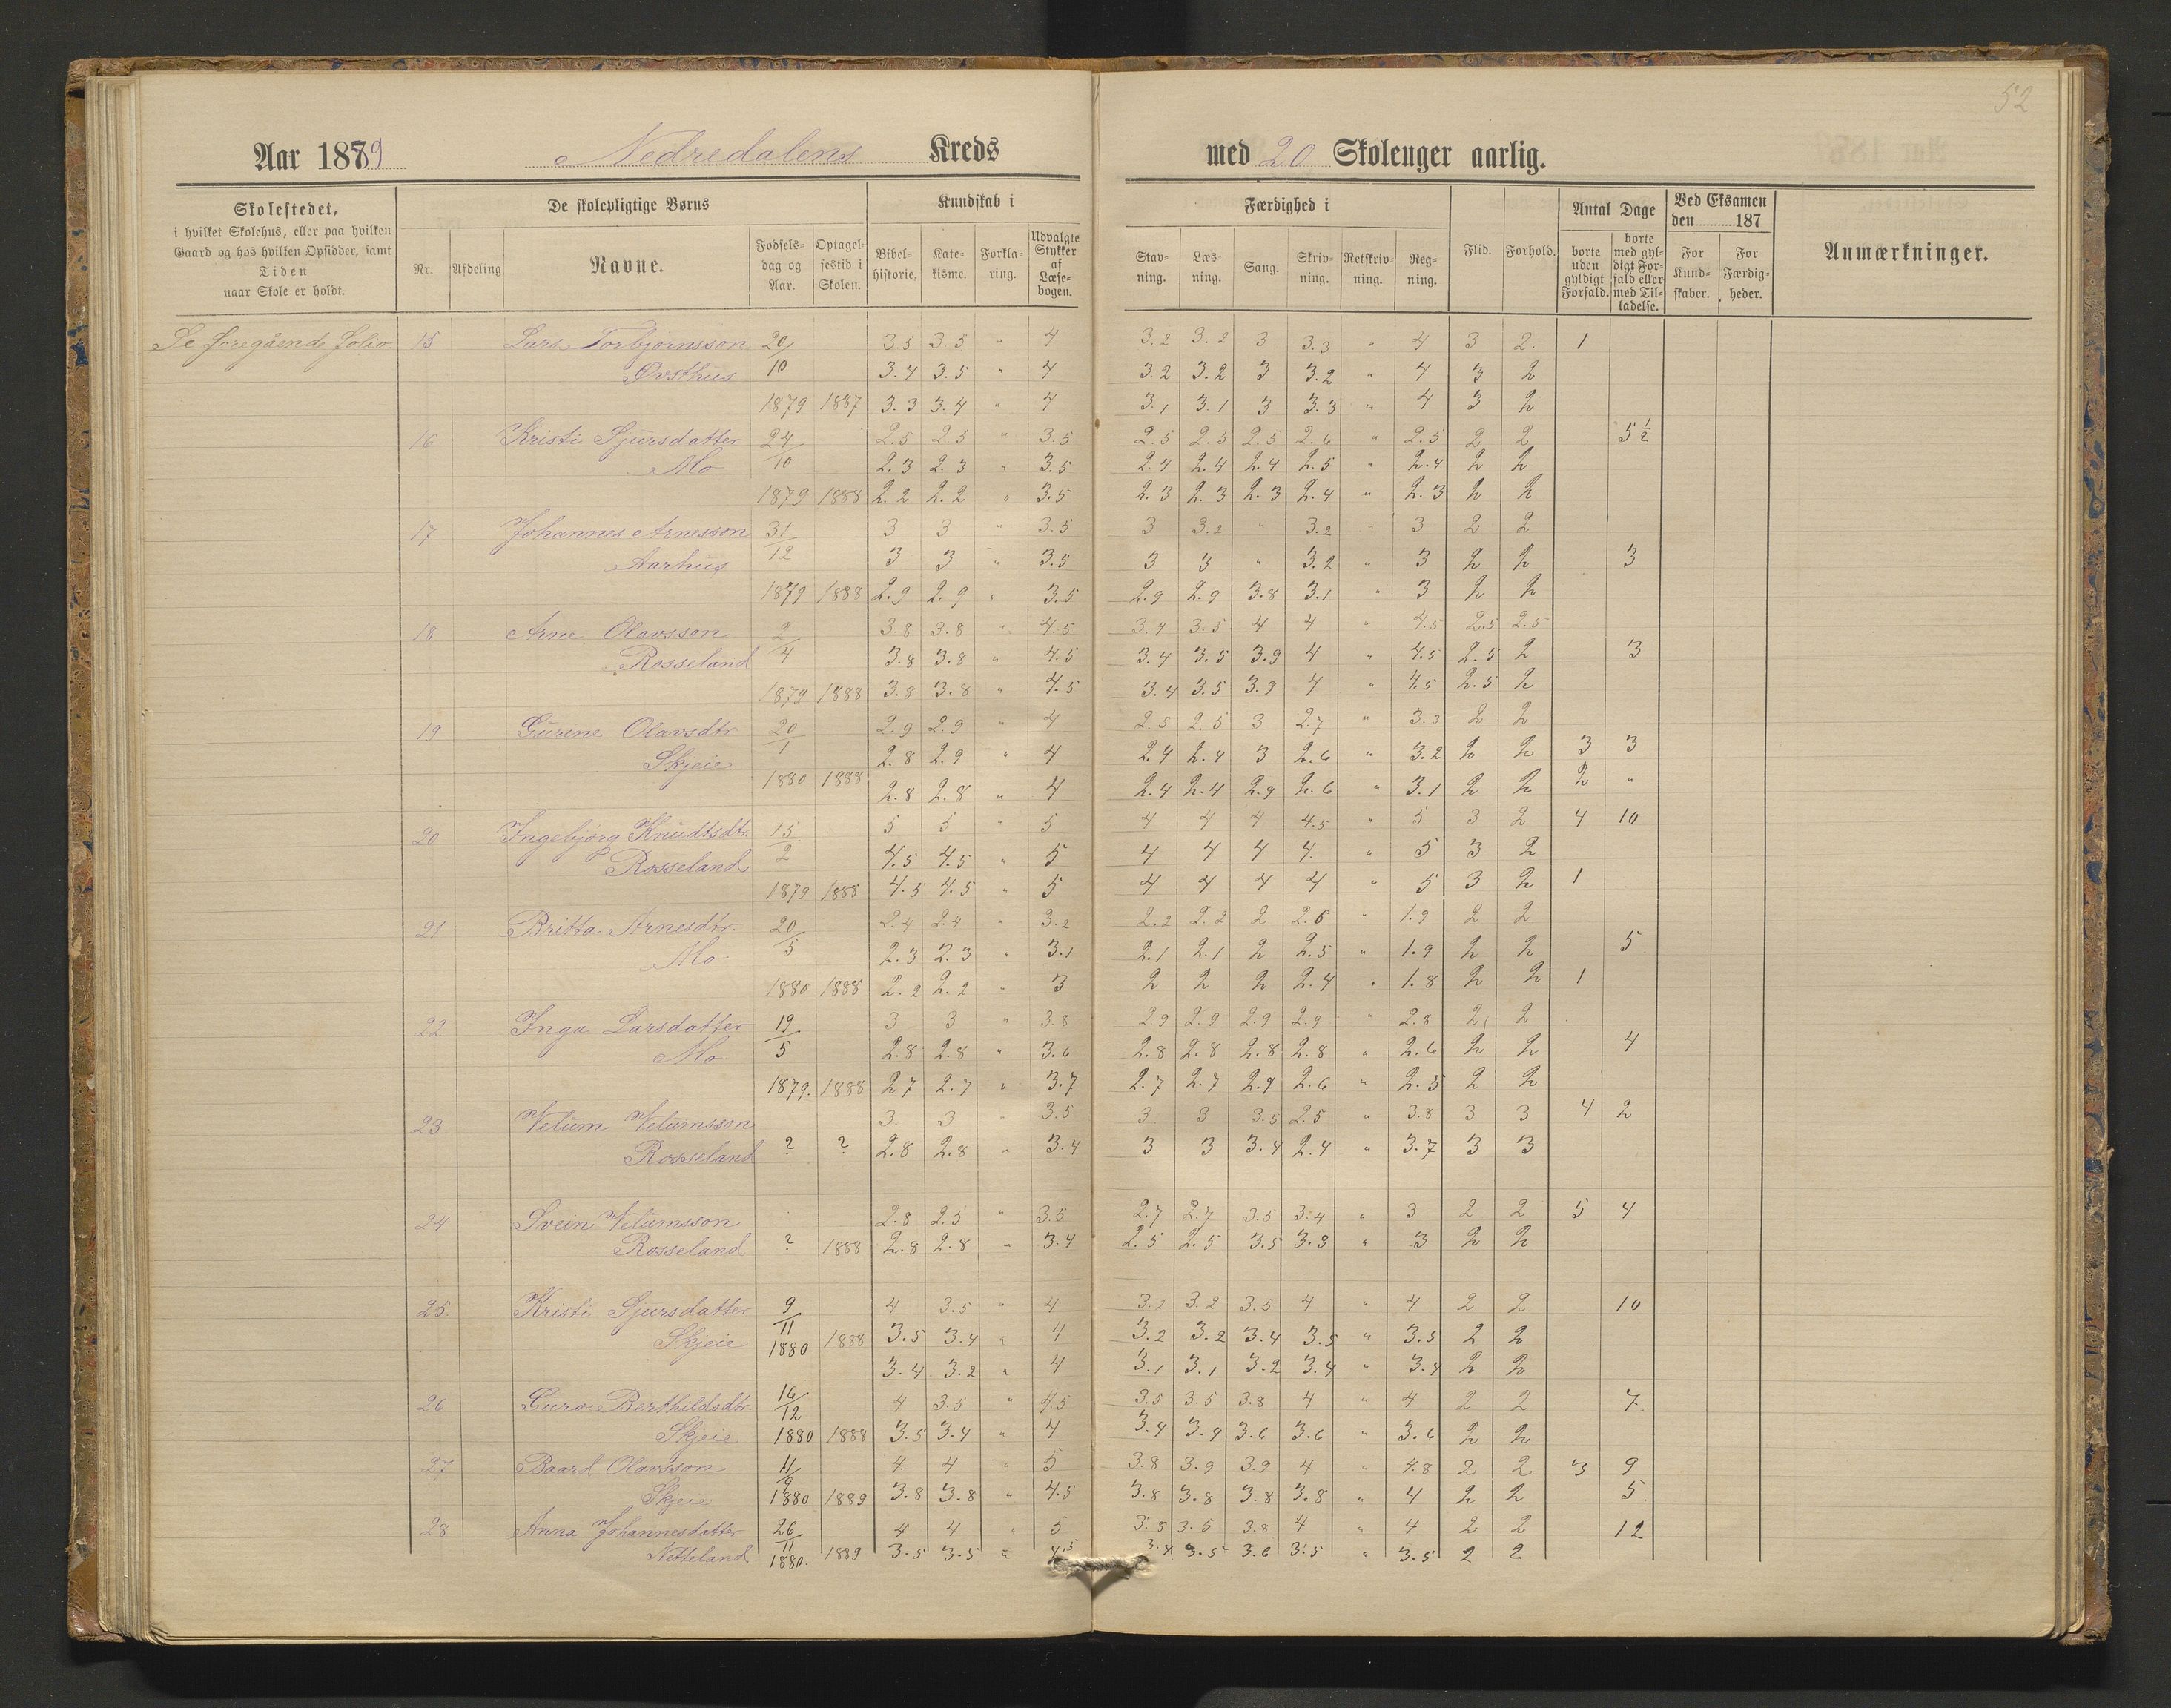 52
Aar 1889 Nedredalens Kreds med 20 Skoleuger aarlig.
Skolestedet, i hvilket Skolehus, eller paa hvilken Gaard og hos hvilken Opsidder, samt Tiden naar Skole er holdt.
De skolepligtige Børns
Nr. Afdeling Navne. Fødselsdag og Aar. Optagelsestid i Skolen.
Kundskab i
Bibelhistorie. Katekisme. Forklaring. Udvalgte Stykker af Læsebogen.
Færdighed i
Stavning. Læsning. Sang. Skrivning. Retskrivning. Regning.
Flid. Forhold.
Antal Dage
borte uden gyldigt Forfald. borte med gyldigt Forfald eller med Tilladelse.
Ved Eksamen den 187
For Kundskaber. For Færdigheder.
Anmærkninger.
Se foregående folio. 15 Lars Torbjørnsson 20/ 3.5 3.5 " 4 3.2 3.2 3 3.3 " 4 3 2. 1
Øvsthus 10 3.4 3.5 " 4 3.2 3.2 3 3.2 " 4 3 2
1879 1887 3.3 3.4 " 4 3.1 3.1 3 3.3 " 4 3 2
16 Kristi Sjursdatter 24/ 2.5 2.5 " 3.5 2.5 2.5 2.5 2.6 " 2.5 2 2 5 1/2
Mo 10 2.3 2.3 " 3.5 2.4 2.4 2.4 2.5 " 2.4 2 2
1879 1888 2.2 2.2 " 3.5 2.3 2.3 2.3 2.4 " 2.3 2 2
17 Johannes Arnesson 31/ 3 3 " 3.5 3 3.2 " 3.2 " 3 2 2
Aarhus 12 3 3 " 3.5 3 3 " 3.2 " 3 2 2 3
1879 1888 2.9 2.9 " 3.5 2.9 2.9 3.8 3.1 " 3 2 2
18 Arne Olavsson 2/ 3.8 3.8 " 4.5 3.4 3.5 4 4 " 4.5 2.5 2.5
Rosseland 4 3.8 3.8 " 4.5 3.4 3.5 3.9 4 " 4.5 2.5 2 3
1879 1888 3.8 3.8 " 4.5 3.4 3.5 3.9 4 " 4.5 2.5 2
19 Gurine Olavsdtr. 20/ 2.9 2.9 " 4 2.5 2.5 3 2.7 " 3.3 2 2
Skjeie 1 2.8 2.9 " 4 2.4 2.4 3 2.6 " 3.2 2 2 3 3
1880 1888 2.8 2.8 " 4 2.4 2.4 2.9 2.6 " 3.1 2 2 2 "
20 Ingebjørg Knudtsdtr. 15/ 5 5 " 5 4 4 4 4.5 " 5 3 2 4 10
Rosseland 2 4.5 4.5 " 5 4 4 4 4. " 5 3 2
1879 1888 4.5 4.5 " 5 4 4 4 4 " 5 3 2 1
21 Britta Arnesdtr. 20/ 2.4 2.4 " 3.2 2.2 2.2 2 2.6 " 1.9 2 2
Mo 5 2.3 2.3 " 3.1 2.1 2.1 2 2.5 " 1.9 2 2 5
1880 1888 2.2 2.2 " 3 2 2 2 2.4 " 1.8 2 2 1
22 Inga Larsdatter 19/ 3 3 " 3.8 2.9 2.9 2.9 2.9 " 2.8 2 2
Mo 5 2.8 2.8 " 3.6 2.8 2.8 2.8 2.8 " 2.6 2 2 4
1879. 1888 2.7 2.7 " 3.7 2.7 2.7 2.7 2.6 " 2.5 2 2
23 Velum Velumsson 3. 3 " 3.5 3 3 3.5 2.5 " 3.8 3 3 4 2
Rosseland ? ? 2.8 2.8 " 3.4 3 3 3.4 2.4 " 3.7 3 3
24 Svein Velumsson 2.8 2.5 " 3.5 2.7 2.7 3.5 3.4 " 3 2 2 5 4
Rosseland ? 1888 2.8 2.8 " 3.4 2.5 2.5 3.5 3.3 " 3 2 2
25. Kristi Sjursdatter 9/ 4 3.5 " 4 3.2 3.2 3.5 4 " 4 2 2 10
Skjeie 11 1880 1888 3.5 3.4 " 4 3.2 3.2 3.4 3.5 " 3.5 2 2
3.4 3.2 " 4 3.1 3.1 3.2 3.4 " 3.4 2 2
26 Berthildsdtr 16/12 4 3.5 " 4.5 3.5 3.5 3.8 4 " 4 2 2 7.
Skjeie 1880 1888 3.5 3.4 " 4 3.4 3.4 3.6 3.6 " 3.6 2 2
27 Baard Olavsson 11/ 4. 4 " 5 3.8 3.9 3.9 4 " 4.8 2 2 3 9
Skjeie 9 1880 1889 3.8 3.8 " 4.5 3.8 3.8 3.8 3.8 " 4 2 2 5.
28 Anna Johannesdatter 26/ 4 4 " 5 3.5 3.5 3.8 4 " 4 2 2 12
Netteland 11 1880. 1889 3.5 3.5 " 4.5 3.4 3.5 3.6 3.5 " 3.5 2 2